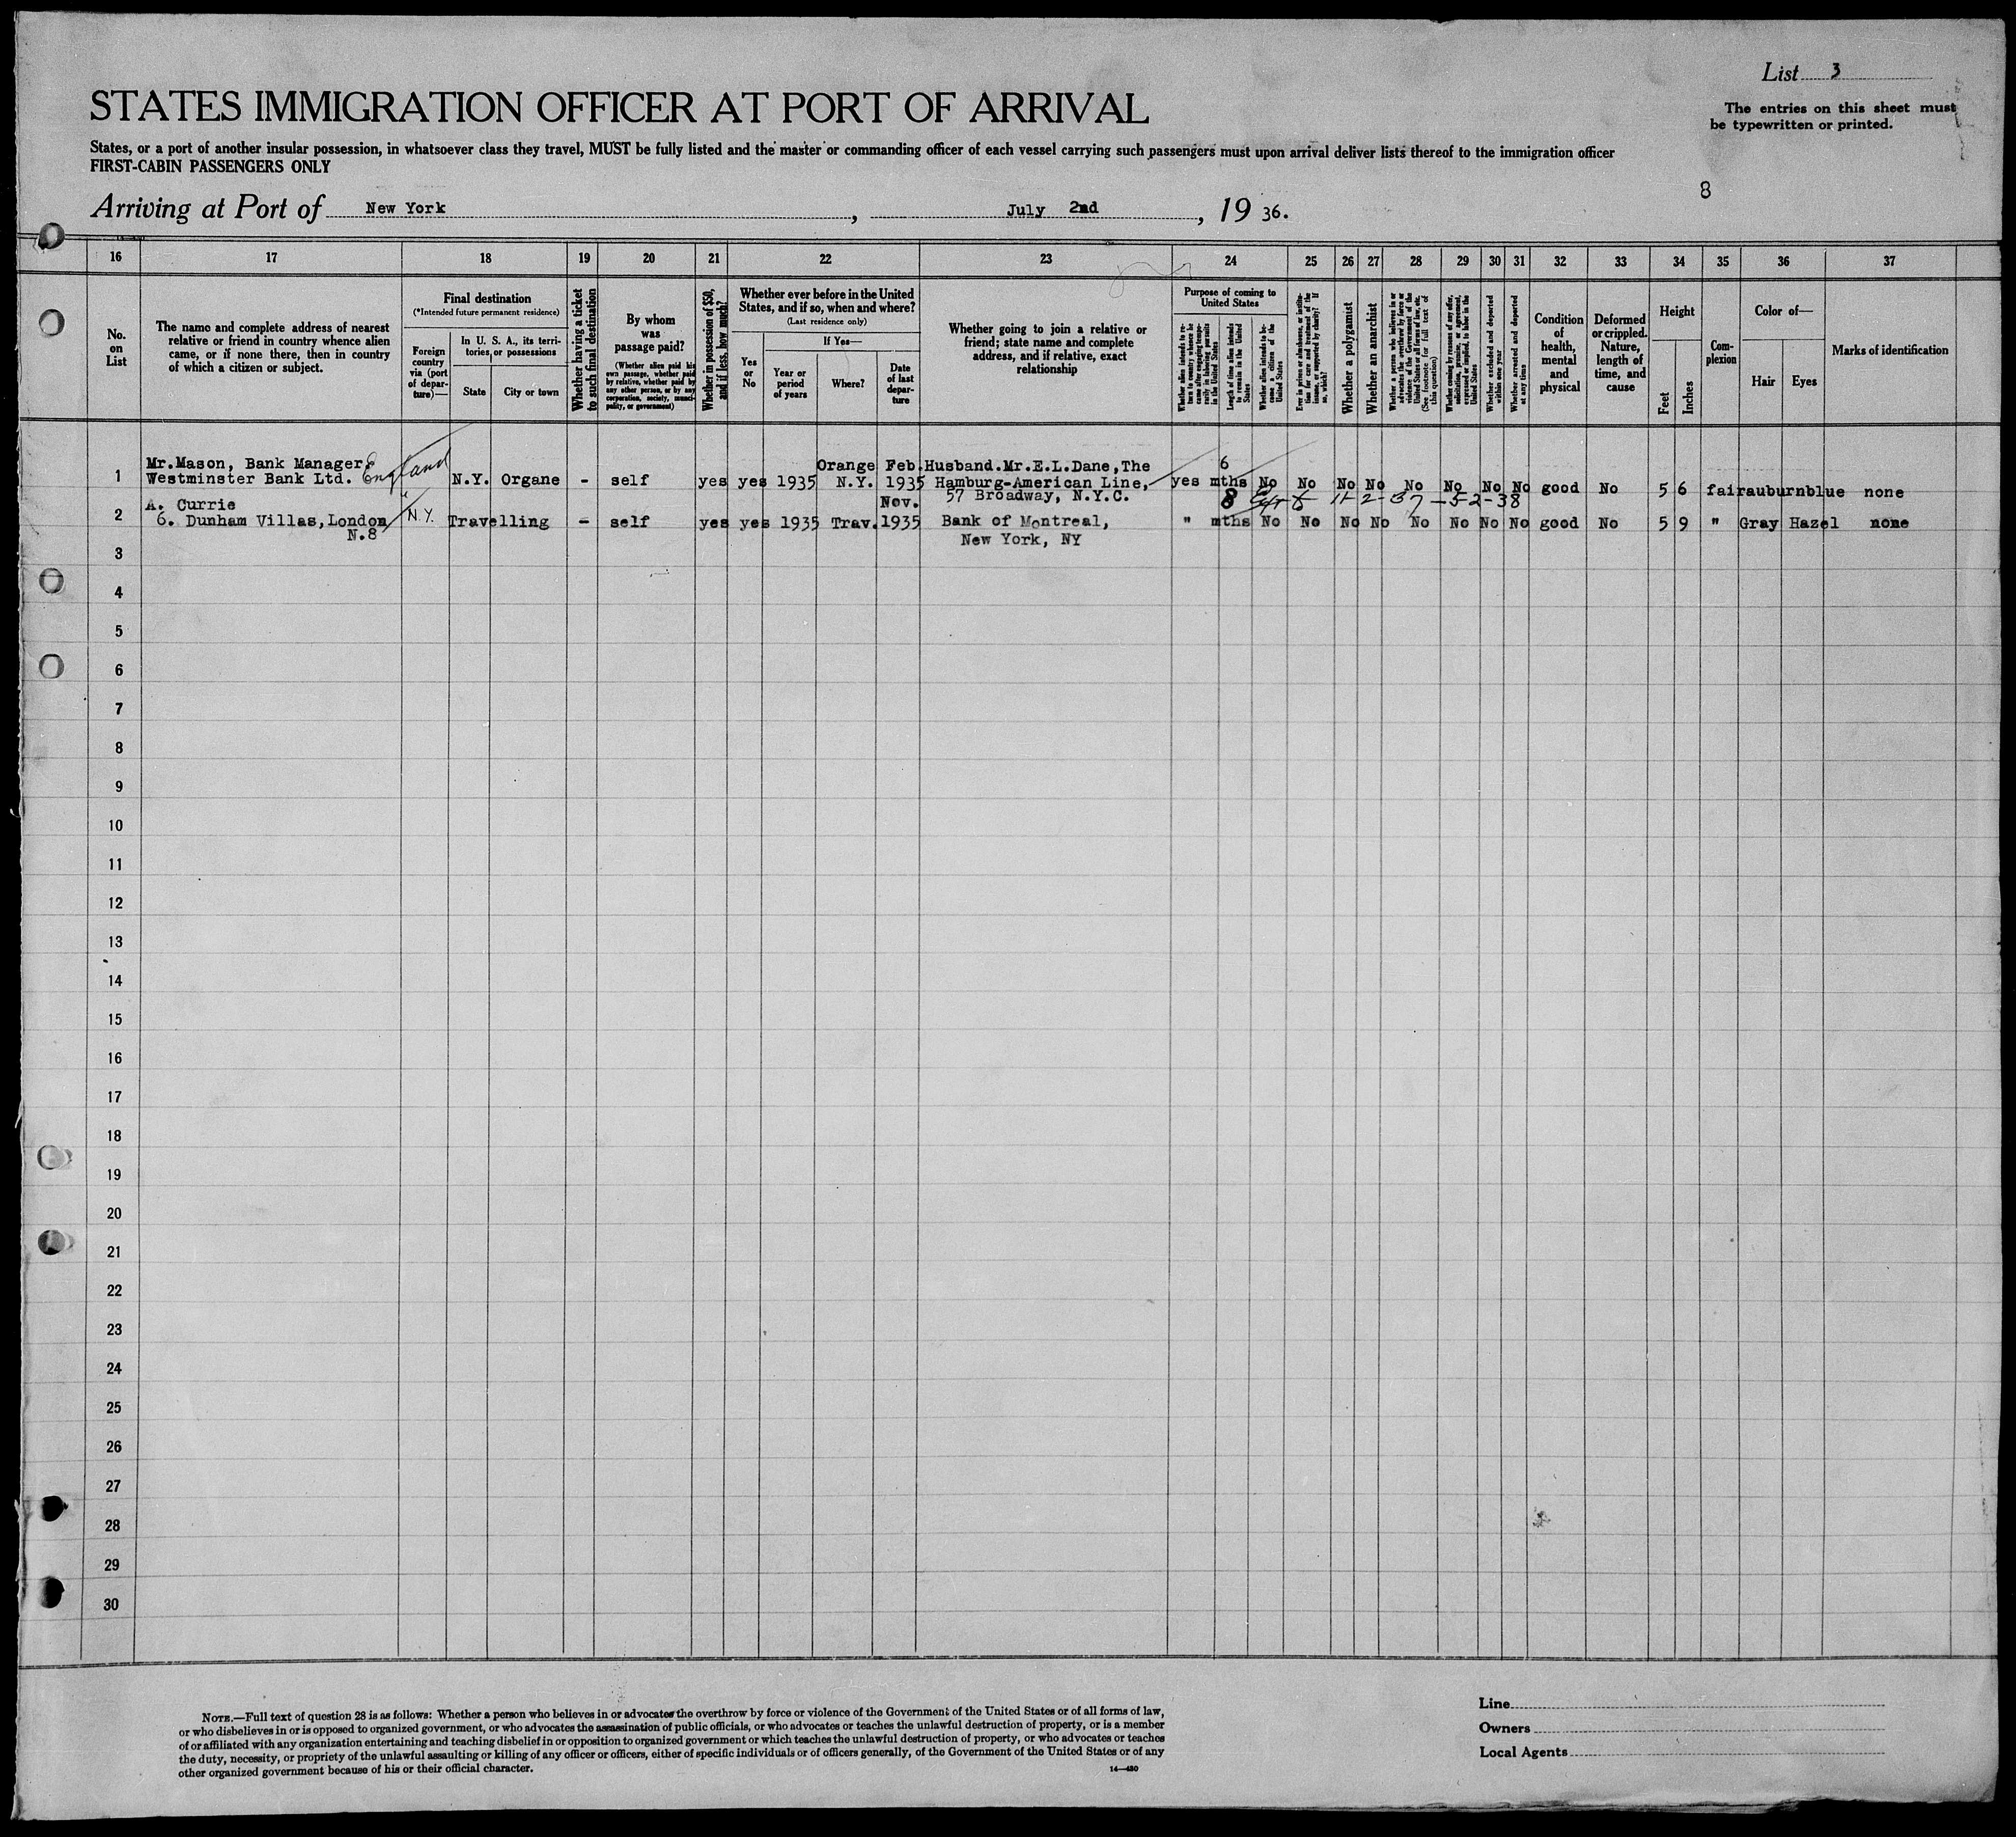 List 3
STATES IMMIGRATION OFFICER AT PORT OF ARRIVAL
The entries on this sheet must
be typewritten or printed.
States, or a port of another insular possession, in whatsoever class they travel, MUST be fully listed and the master or commanding officer of each vessel carrying such passengers must upon arrival deliver lists thereof to the immigration officer
FIRST-CABIN PASSENGERS ONLY
8
Arriving at Port of New York, July 2nd, 19 36.
16 17 18 19 20 21 22 23 24 25 26 27 28 29 30 31 32 33 34 35 36 37
No.
on
List
The name and complete address of nearest
relative or friend in country whence alien
came, or if none there, then in country
of which a citizen or subject.
Final destination
(*Intended future permanent residence)
Foreign
country
via (port
of depar-
ture)—
In U. S. A., its terri-
tories, or possessions
State
City or town
Whether having a ticket
to such final destination
By whom
was
passage paid?
(Whether alien paid his
own passage, whether paid
by relative, whether paid by
any other person, or by any
corporation, society, munici-
pality, or government)
Whether in possession of $50,
and if less, how much?
Whether ever before in the United
States, and if so, when and where?
(Last residence only)
Yes
or
No
If Yes—
Year or
period
of years
Where?
Date
of last
depar-
ture
Whether going to join a relative or
friend; state name and complete
address, and if relative, exact
relationship
Purpose of coming to
United States
Whether alien intends to re-
turn to country whence he
came after engaging tempo-
rarily in laboring pursuits
in the United States
Length of time alien intends
to remain in the United
States
Whether alien intends to be-
come a citizen of the
United States
Ever in prison or almshouse, or institu-
tion for care and treatment of the
insane, or supported by charity? If
so, which?
Whether a polygamist
Whether an anarchist
Whether a person who believes in or
advocates the overthrow by force or
violence of the Government of the
United States or all forms of law, etc.
(See footnote for full text of
this question)
Whether coming by reasons of any offer,
solicitation, promise, or agreement,
expressed or implied, to labor in the
United States
Whether excluded and deported
within one year
Whether arrested and deported
at any time
Condition
of
health,
mental
and
physical
Deformed
or crippled.
Nature,
length of
time, and
cause
Height
Feet
Inches
Com-
plexion
Color of—
Hair
Eyes
Marks of identification
Mr.Mason, Bank Manager, Orange Feb. Husband.Mr.E.L.Dane,The 6
1 Westminster Bank Ltd. England N.Y. Organe - self yes yes 1935 N.Y. 1935 Hamburg-American Line, yes mths No No No No No No No No good No 5 6 fair auburn blue none
A. Currie Nov. 57 Broadway, N.Y.C. 8 11-2-37 - 5-2-38
2 6. Dunham Villas, London " N.Y. Travelling - self yes yes 1935 Trav. 1935 Bank of Montreal, " mths No No No No No No No No good No 5 9 " Gray Hazel none
N.8 New York, NY
3
4
5
6
7
8
9
10
11
12
13
14
15
16
17
18
19
20
21
22
23
24
25
26
27
28
29
30
NOTE.—Full text of question 28 is as follows: Whether a person who believes in or advocates the overthrow by force or violence of the Government of the United States or of all forms of law,
or who disbelieves in or is opposed to organized government, or who advocates the assassination of public officials, or who advocates or teaches the unlawful destruction of property, or is a member
of or affiliated with any organization entertaining and teaching disbelief in or opposition to organized government or which teaches the unlawful destruction of property, or who advocates or teaches
the duty, necessity, or propriety of the unlawful assaulting or killing of any officer or officers, either of specific individuals or of officers generally, of the Government of the United States or of any
other organized government because of his or their official character.
14—430
Line
Owners
Local Agents